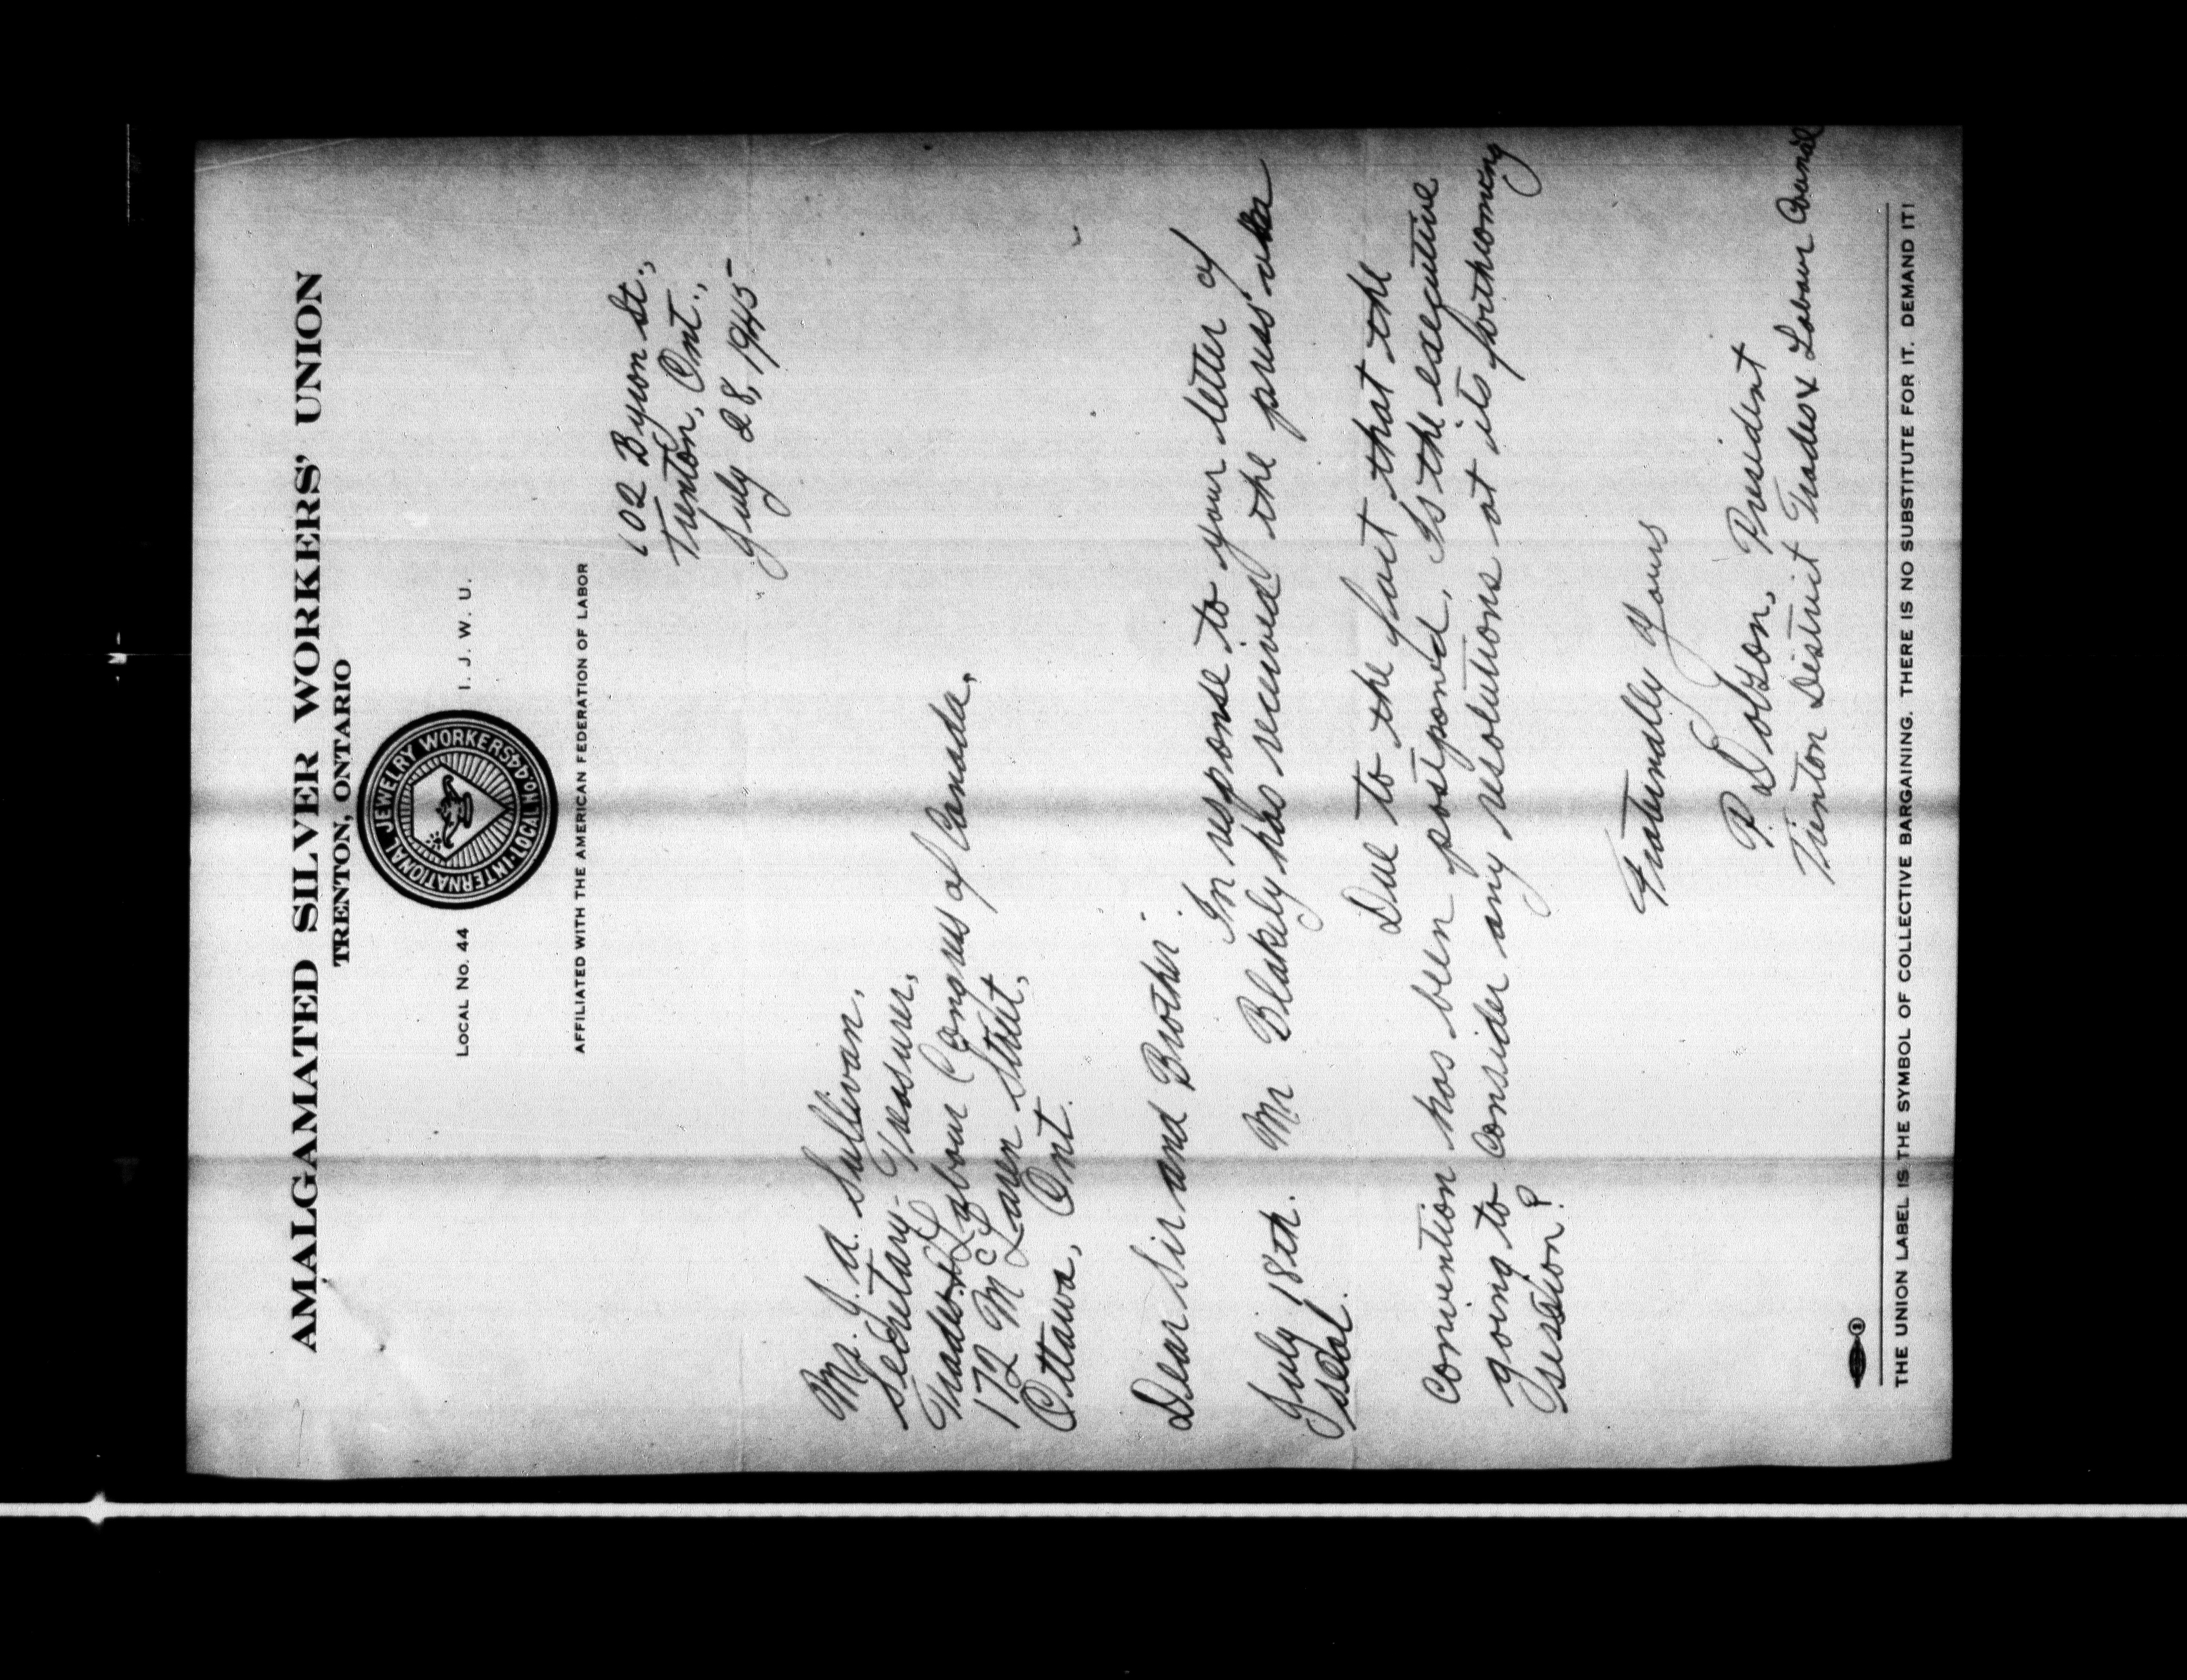 AMALGAMATED SILVER WORKERS' UNION
TRENTON, ONTARIO
LOCAL No. 44 I. J. W. U.
INTERNATIONAL JEWELRY WORKERS LOCAL No 44
AFFILIATED WITH THE AMERICAN FEDERATION OF LABOR
102 Byron St.,
Trenton, Ont.,
July 28, 1945
Mr. J. A. Sullivan,
Secretary-Treasurer,
Trades & Labour Congress of Canada,
172 McLaren Street,
Ottawa, Ont.
Dear Sir and Brother:
In response to your letter of
July 18th. Mr Blakely has received the press
seal.
Due to the fact that the
convention has been postponed, Is the executive
going to consider any resolutions at its forthcoming
session?
Fraternally Yours
P. Dolzon, President
Trenton District Trades & Labour Council
THE UNION LABEL IS THE SYMBOL OF COLLECTIVE BARGAINING. THERE IS NO SUBSTITUTE FOR IT. DEMAND IT!